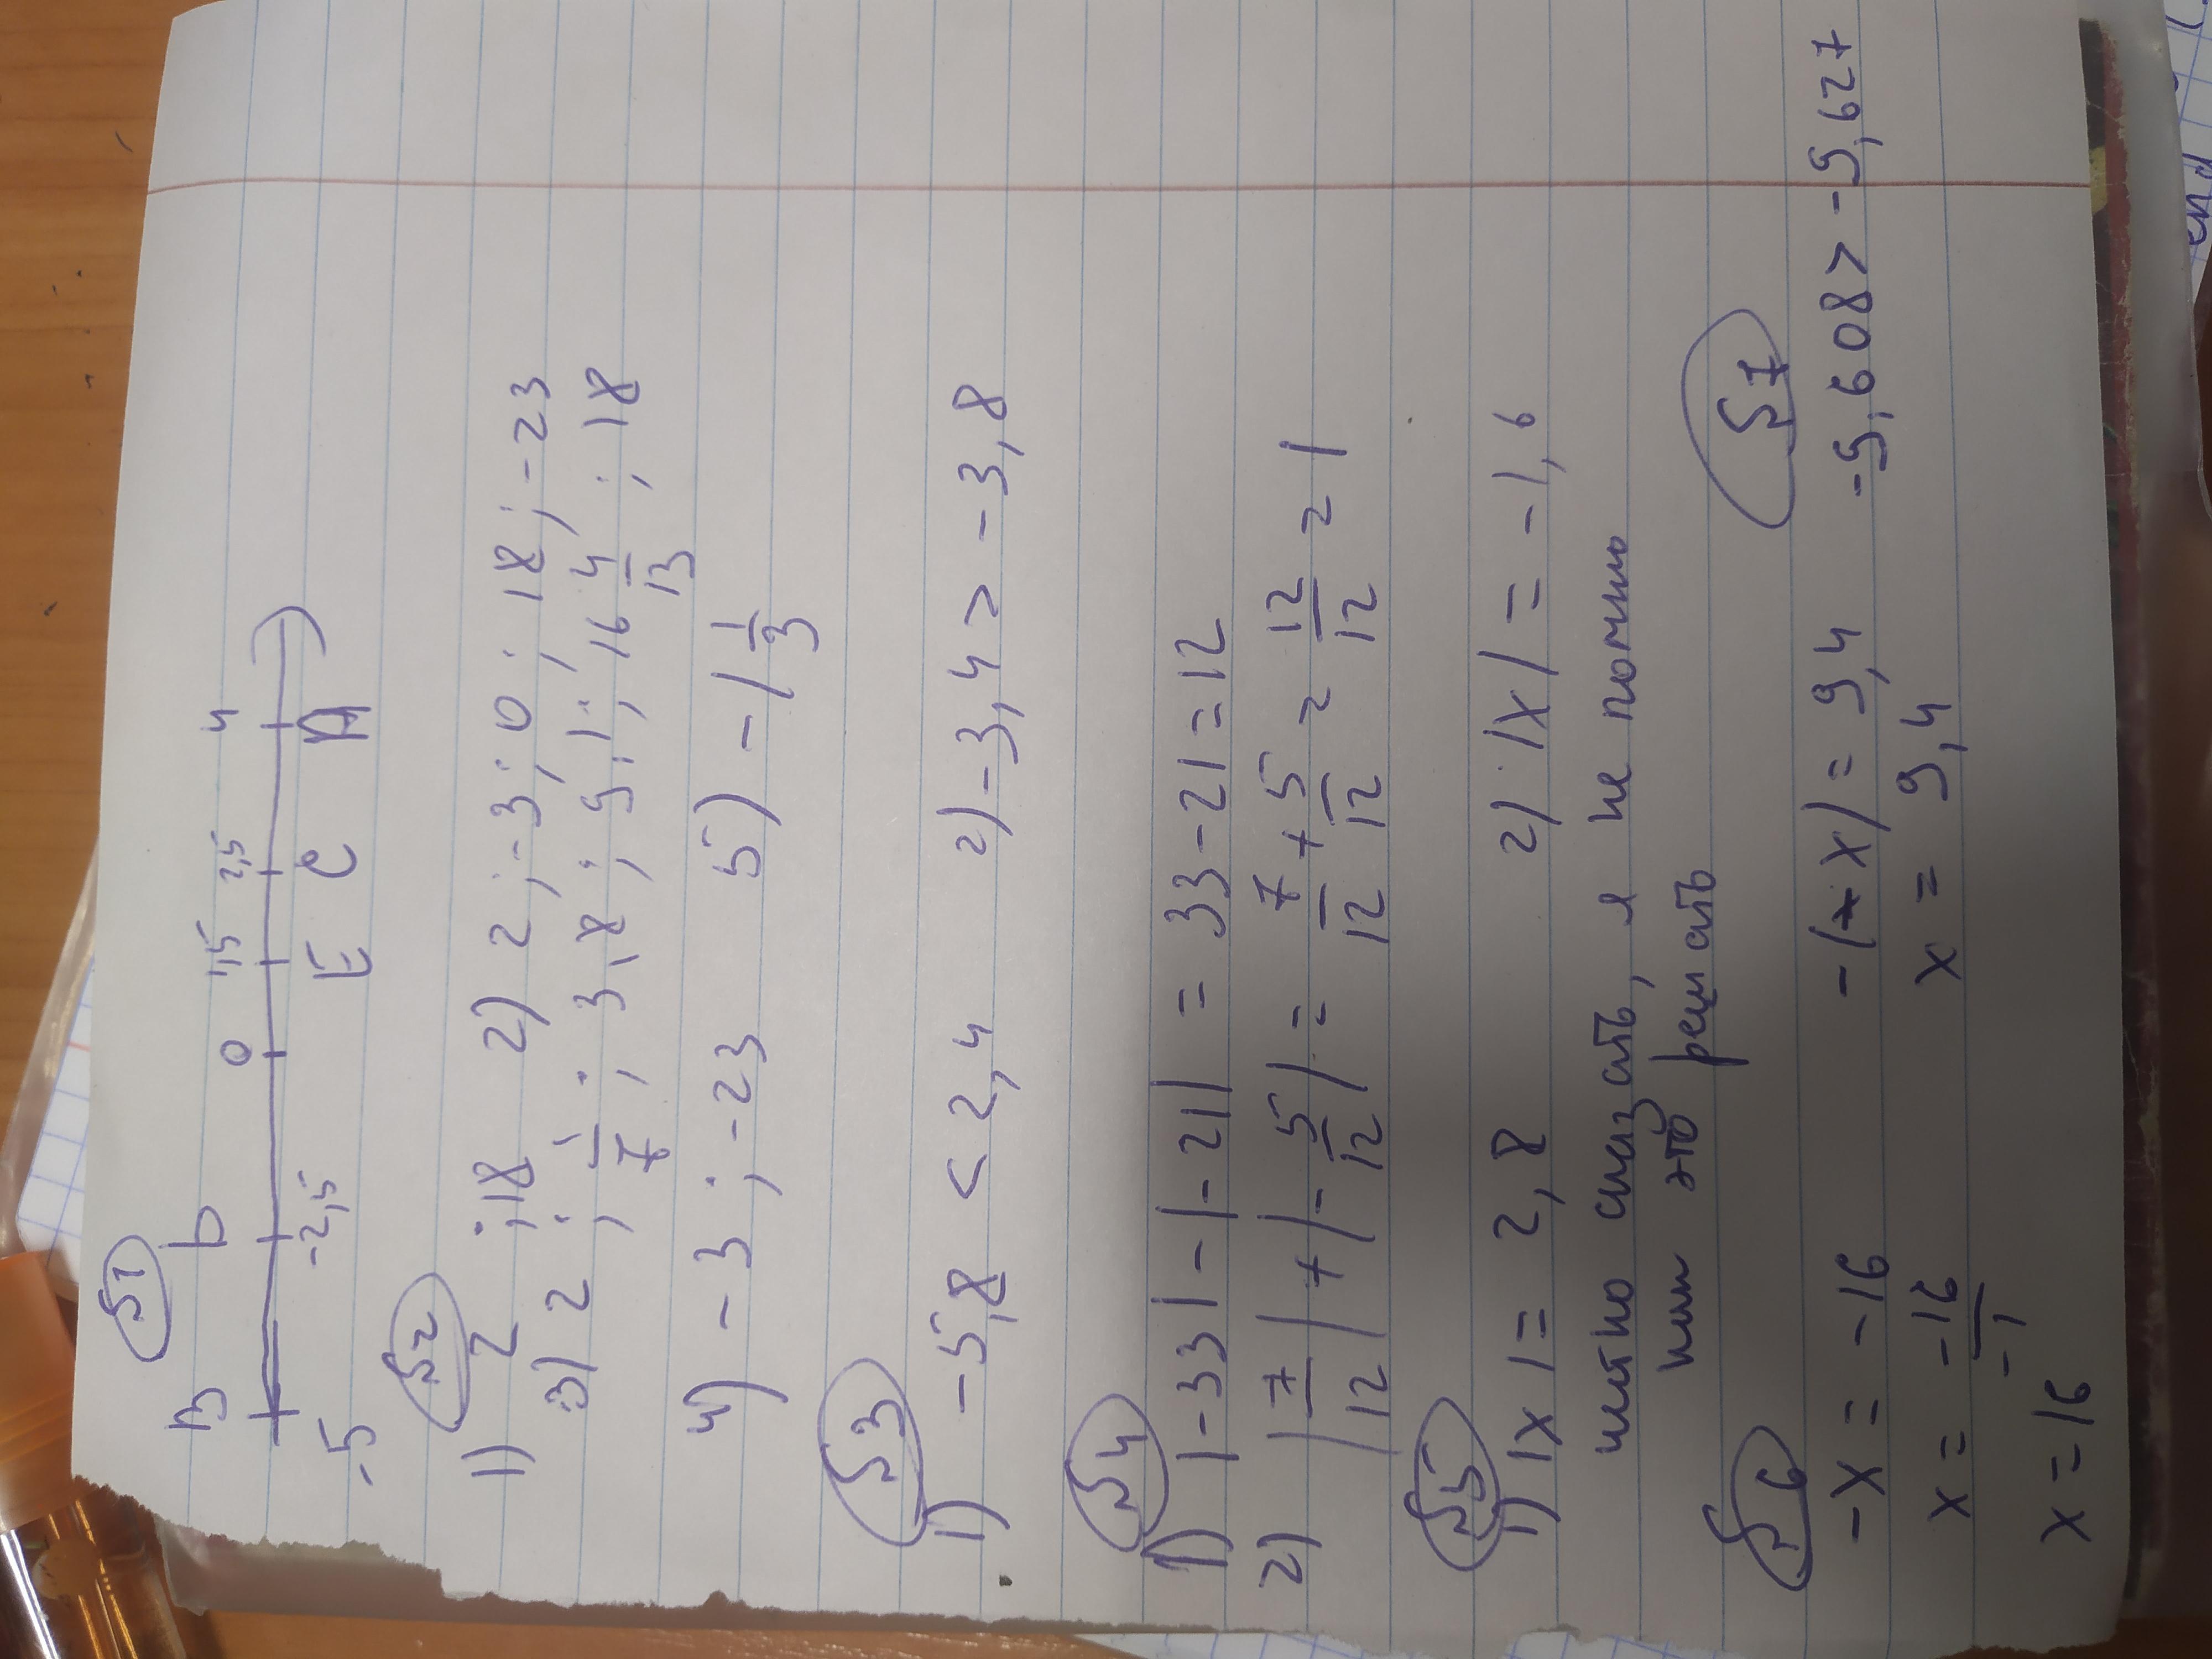 №1
В b 0 1,5 2,5 4
-5 -2,5 E C A
№2
1) 2 ; 18 2) 2 ; -3 ; 0 ; 18 ; -23
3) 2 ; 1/7 ; 3,8 ; 9,1 ; 16 4/13 ; 18
4) -3 ; -23 5) -1 1/3
№3
1) -5,8 < 2,4 2) -3,4 > -3,8
№4
1) |-33| - |-21| = 33-21=12
2) |7/12| + |-5/12| = 7/12 + 5/12 = 12/12 = 1
№5
1) |x| = 2,8 2) |x| = -1,6
честно сказать, я не помню
как это решать
№6 №7
-x = -16 -(-x) = 9,4 -9,608 > -9,627
x = -16/-1 x = 9,4
x = 16